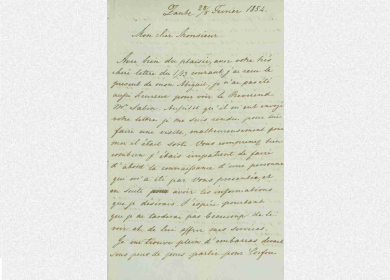 Zante 20/8 Fevrier 1854.
Mon cher Monsieur
Avec bien du plaisir, avec votre très
chère lettre du 1/13 courant, j'ai reçu le
présent de mon Abigail, je n'ai pas été
aussi heureux pour voir le Reverend
Mr qu'il m'ont envoyé
votre lettre, je me suis rendu pour lui
faire une visite, malheureusement pour
moi il était sorti. Vous comprenez bien
combien j'étais impatient de faire
d'abord la connaissance d'une personne
qui m'a été par vous présentée, et
en suite avoir les informations
que je désirais. J'espère pourtant
que je ne tarderai pas beaucoup de le
voir et de lui offrir mes services.
Je me trouve plein d'embarras devant
sous peu de jours partir pour Corfou